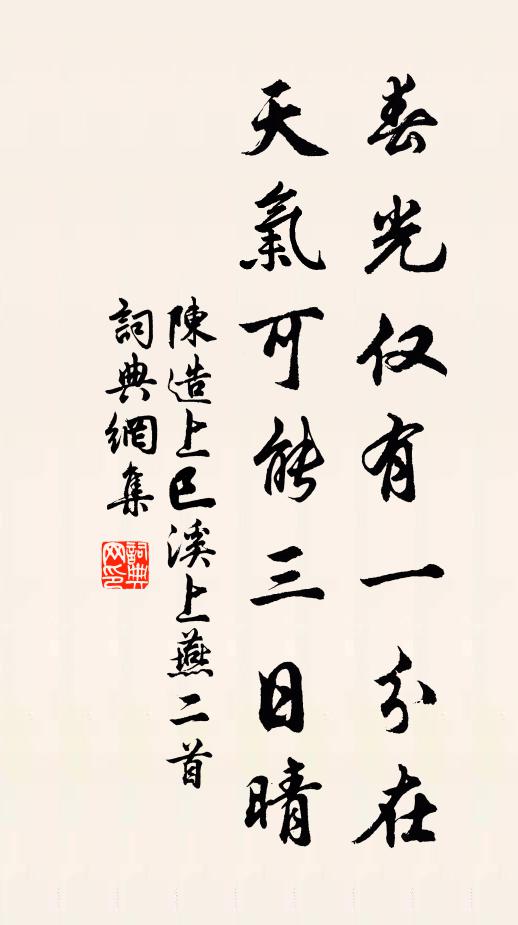 春光仅有一分在
天氣可能三日晴
陳造上巳溪上燕二首
詞典網集
詞典网印